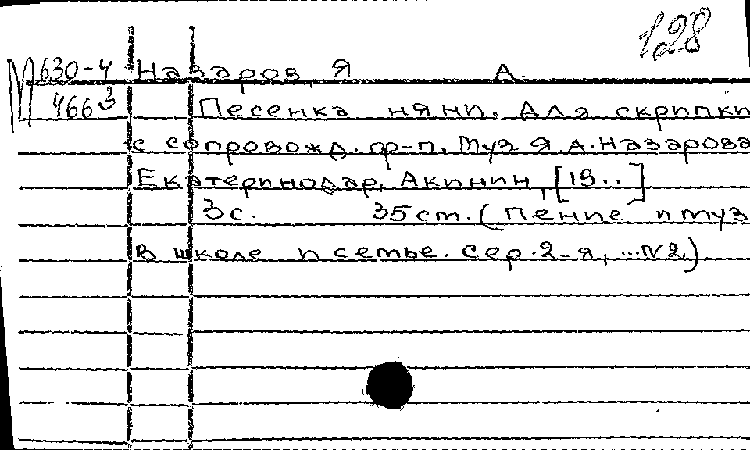 128
М 630-4 Назаров, Я А.
466 3 Песенка няни. Для скрипки
с сопровожд. ф-п. Муз Я.А. Назарова
Екатеринодар, Акинин, [19..]
3с. 35 cm. (Пение и муз
в школе и семье. Сер. 2-я, ... №2)